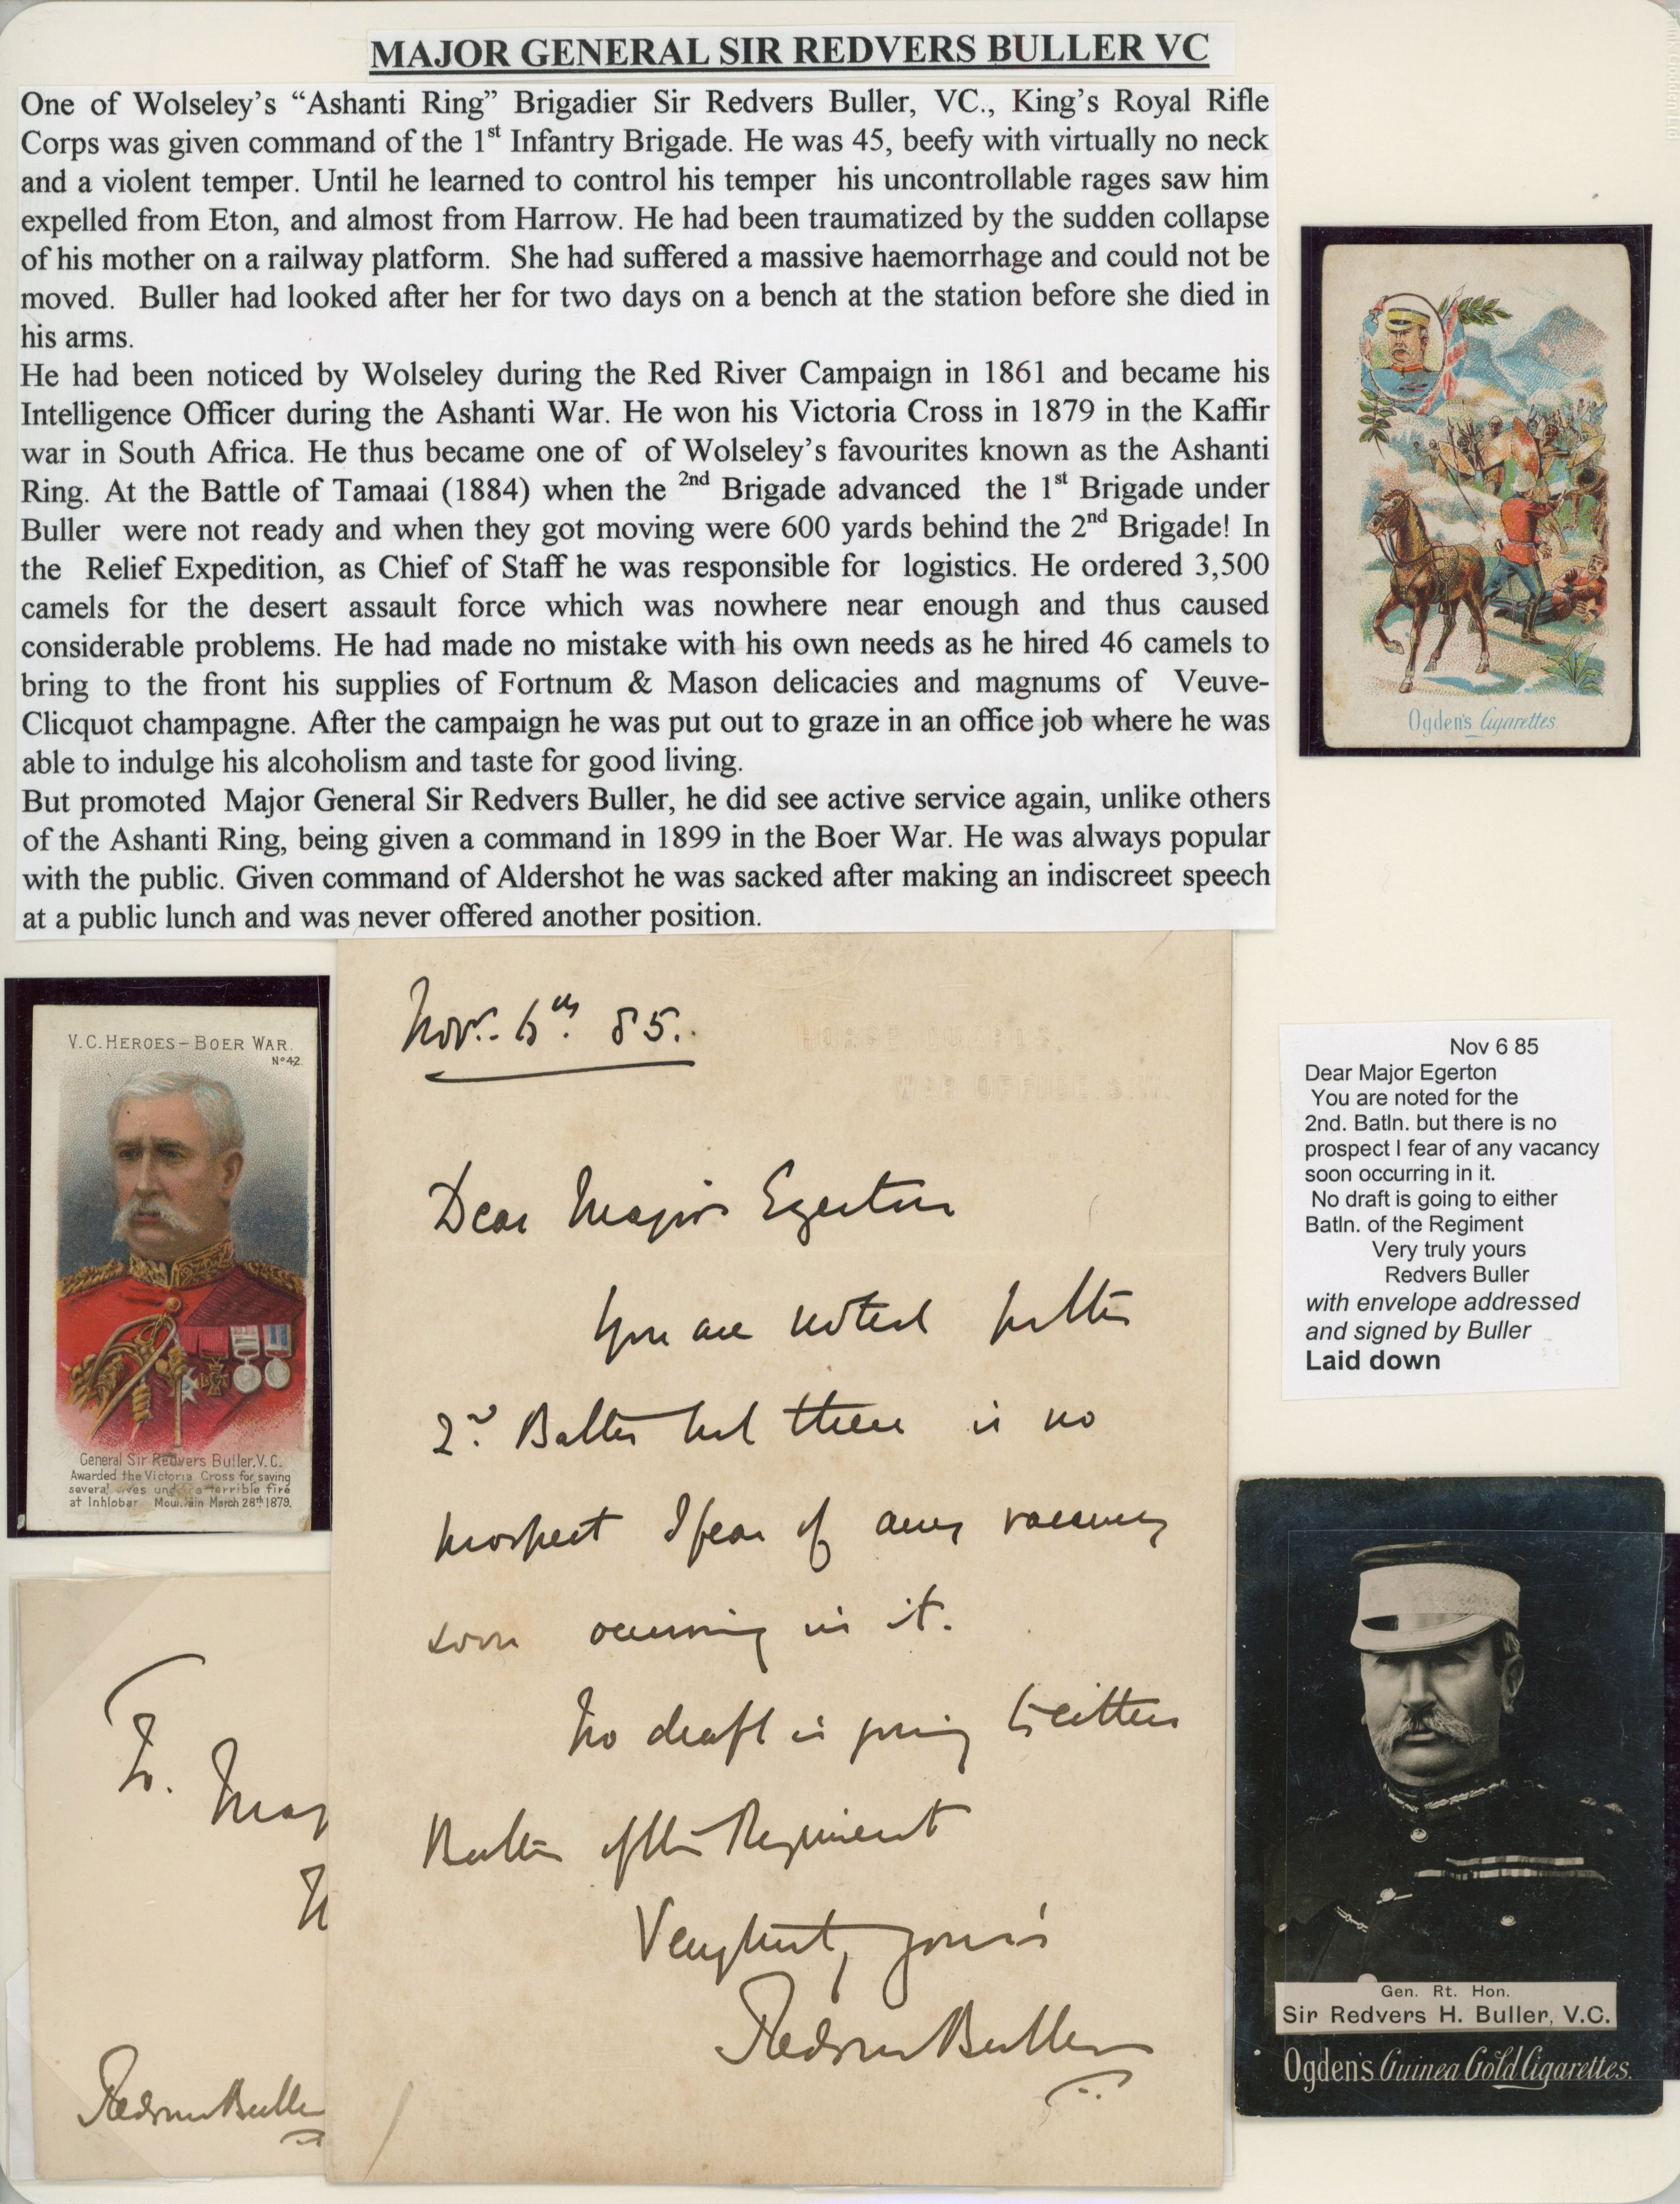 MAJOR GENERAL SIR REDVERS BULLER VC
One of Wolseley's “Ashanti Ring” Brigadier Sir Redvers Buller, VC., King's Royal Rifle
Corps was given command of the 1st Infantry Brigade. He was 45, beefy with virtually no neck
and a violent temper. Until he learned to control his temper his uncontrollable rages saw him
expelled from Eton, and almost from Harrow. He had been traumatized by the sudden collapse
of his mother on a railway platform. She had suffered a massive haemorrhage and could not be
moved. Buller had looked after her for two days on a bench at the station before she died in
his arms.
He had been noticed by Wolseley during the Red River Campaign in 1861 and became his
Intelligence Officer during the Ashanti War. He won his Victoria Cross in 1879 in the Kaffir
war in South Africa. He thus became one of of Wolseley's favourites known as the Ashanti
Ring. At the Battle of Tamaai (1884) when the 2nd Brigade advanced the 1st Brigade under
Buller were not ready and when they got moving were 600 yards behind the 2nd Brigade! In
the Relief Expedition, as Chief of Staff he was responsible for logistics. He ordered 3,500
camels for the desert assault force which was nowhere near enough and thus caused
considerable problems. He had made no mistake with his own needs as he hired 46 camels to
bring to the front his supplies of Fortnum & Mason delicacies and magnums of Veuve-
Clicquot champagne. After the campaign he was put out to graze in an office job where he was
able to indulge his alcoholism and taste for good living.
But promoted Major General Sir Redvers Buller, he did see active service again, unlike others
of the Ashanti Ring, being given a command in 1899 in the Boer War. He was always popular
with the public. Given command of Aldershot he was sacked after making an indiscreet speech
at a public lunch and was never offered another position.
Ogden's Cigarettes.
V.C. HEROES – BOER WAR.
No 42.
General Sir Redvers Buller, V.C.
Awarded the Victoria Cross for saving
several lives under a terrible fire
at Inhlobar Mountain March 28th 1879.
HORSE GUARDS,
WAR OFFICE. S.W.
Nov. 6th 85.
Dear Major Egerton
You are noted for the
2d Battn but there is no
prospect I fear of any vacancy
soon occurring in it.
No draft is going to either
Battn of the Regiment
Very truly yours
Redvers Buller
Nov 6 85
Dear Major Egerton
You are noted for the
2nd. Batln. but there is no
prospect I fear of any vacancy
soon occurring in it.
No draft is going to either
Batln. of the Regiment
Very truly yours
Redvers Buller
with envelope addressed
and signed by Buller
Laid down
To.
Maj
Redvers Buller
Gen. Rt. Hon.
Sir Redvers H. Buller, V.C.
Ogden's Guinea Gold Cigarettes.